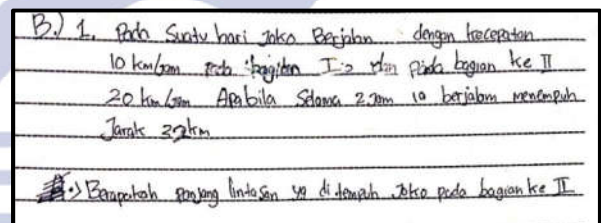 B.) 1. Pada Suatu hari Joko Berjalan dengan kecepatan
10 km/jam pada bagian I dan pada bagian ke II
20 km/jam Apabila Selama 2 jam ia berjalan menempuh
Jarak 32 km
•) Berapakah panjang lintasan yg di tempuh Joko pada bagian ke II